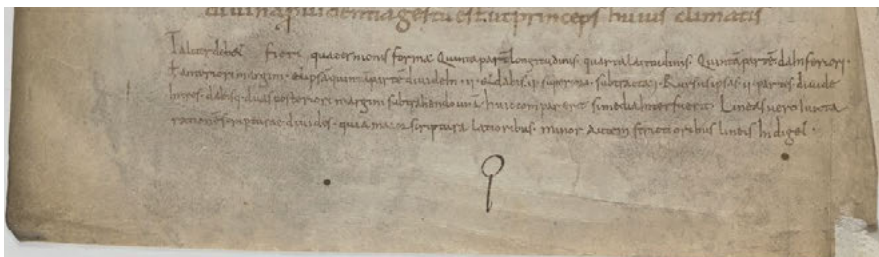 diuina puidentia gestū est. ut princeps huius climatis
Taliter debet fieri quaternionis forma. Quinta parte longitudinis. quarta latitudinis. Quintā partē da inferiori.
ł anteriori margini. et ipsā quintā partē diuide in .iii. et dabis .ii. superiori. subtracta .i. Rursus ipsas .ii. partes diuide
in tres. dabisq; duas posteriori margini subtrahendo unā. huic compar erit si media interfuerit. Lineas uero iuxta
rationē scripturae diuides. quia maior scriptura latioribus. minor autem strictioribus lineis indiget.